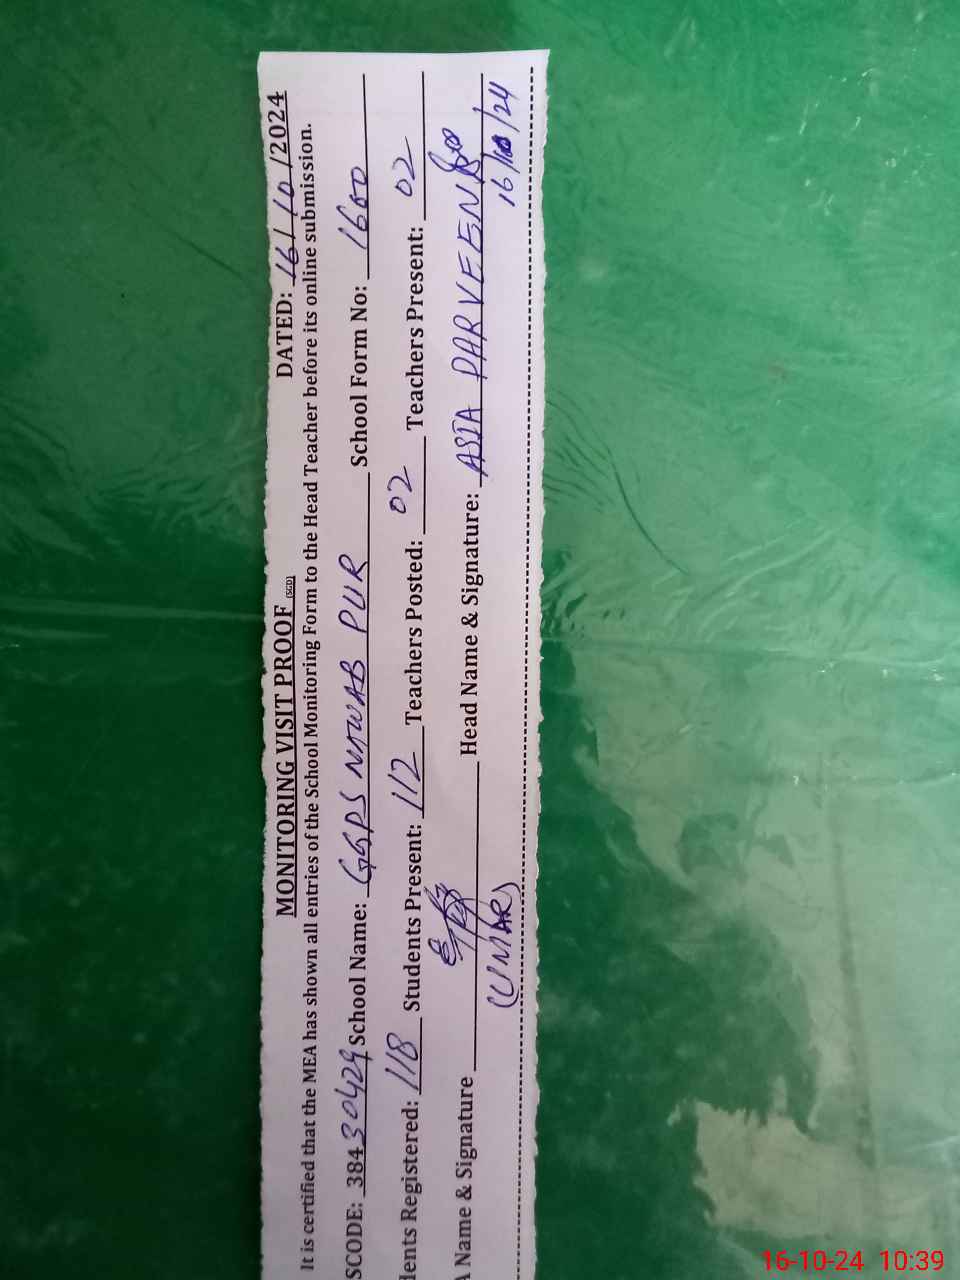 MONITORING VISIT PROOF (SGD) DATED: 16/10/2024
It is certified that the MEA has shown all entries of the School Monitoring Form to the Head Teacher before its online submission.
SCODE: 38430429 School Name: GGPS NAWAB PUR School Form No: 1600
dents Registered: 118 Students Present: 112 Teachers Posted: 02 Teachers Present: 02
A Name & Signature Head Name & Signature: ASIA PARVEEN
(UMAR) 16/10/24
16-10-24 10:39